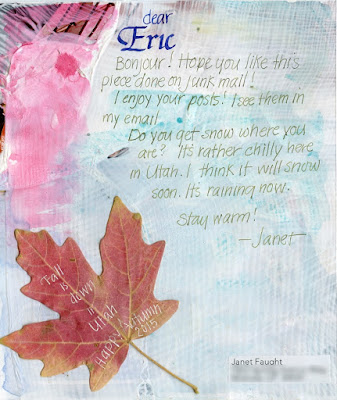 dear
Eric
Bonjour! Hope you like this
piece done on junk mail!
I enjoy your posts! I see them in
my email.
Do you get snow where you
are? It's rather chilly here
in Utah. I think it will snow
soon. It's raining now.
Stay warm!
— Janet —
"Fall
is
down
in
Utah
Happy Autumn
2015
Janet Faught